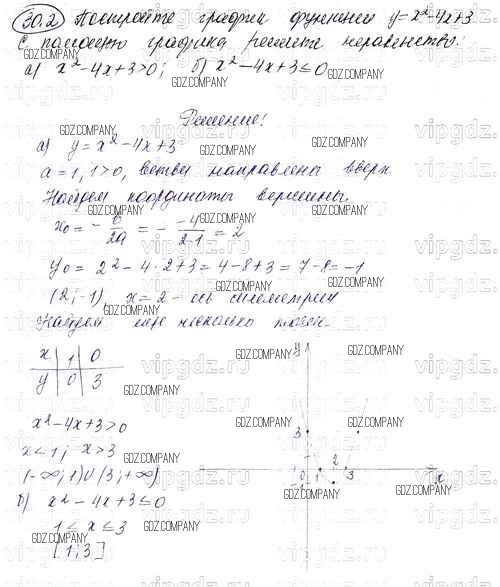 30.2 Постройте график функции y=x²-4x+3
С помощью графика решите неравенство:
а) x²-4x+3>0; б) x²-4x+3≤0
Решение:
а) y=x²-4x+3
a=1, 1>0, ветви направлены вверх
Найдем координаты вершины
x₀ = - b/2a = - -4/2·1 = 2
y₀ = 2² - 4·2+3 = 4-8+3 = 7-8 = -1
(2;-1) x=2 - ось симметрии
Найдем еще несколько точек.
x | 1 | 0
y | 0 | 3
x²-4x+3>0
x<1; x>3
(-∞;1)∪(3;+∞)
б) x²-4x+3≤0
1≤x≤3
[1;3]
y
1
3
2
-1 0 1 3 x
-1
GDZ.COMPANY
vipgdz.ru